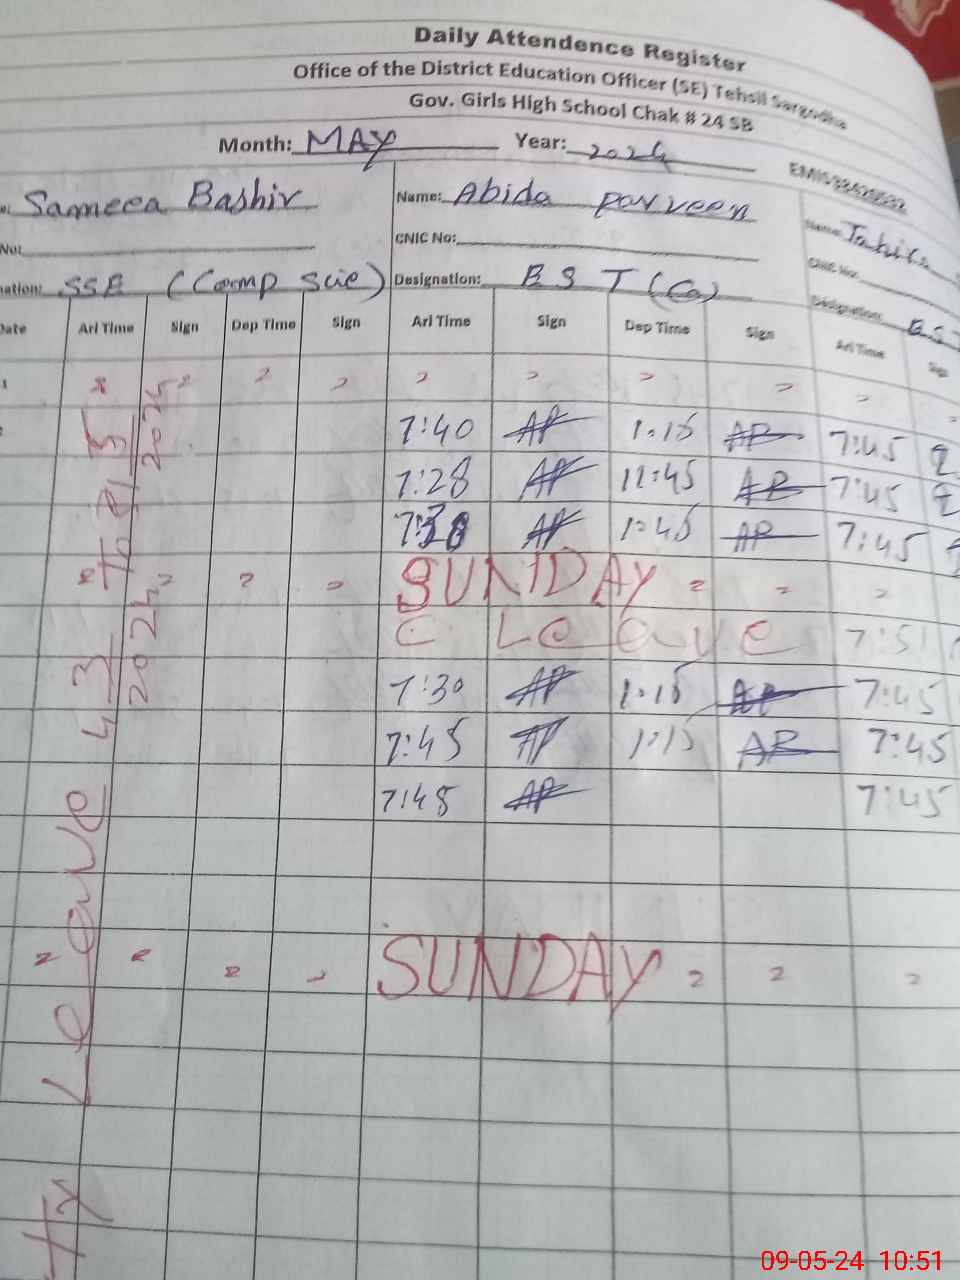 Daily Attendence Register
Office of the District Education Officer (SE) Tehsil Sargodha
Gov. Girls High School Chak # 24 SB
Month: MAY Year: 2024
Sameea Bashir Name: Abida parveen Name:
No: CNIC No: CNIC No:
nation: SSE (Comp Scie) Designation: E S T (G) Designation:
Date Arl Time Sign Dep Time Sign Arl Time Sign Dep Time Sign Arl Time Sign
1
2 7:40 AP 1:15 AP 7:45
7:28 AP 11:45 AP 7:45
7:30 AP 1:45 AP 7:45
SUNDAY
C Leave 7:51
7:30 AP 1:15 AP 7:45
7:45 AP 1:15 AP 7:45
7:45 AP 7:45
SUNDAY
ty Leave
2024
2025
09-05-24 10:51